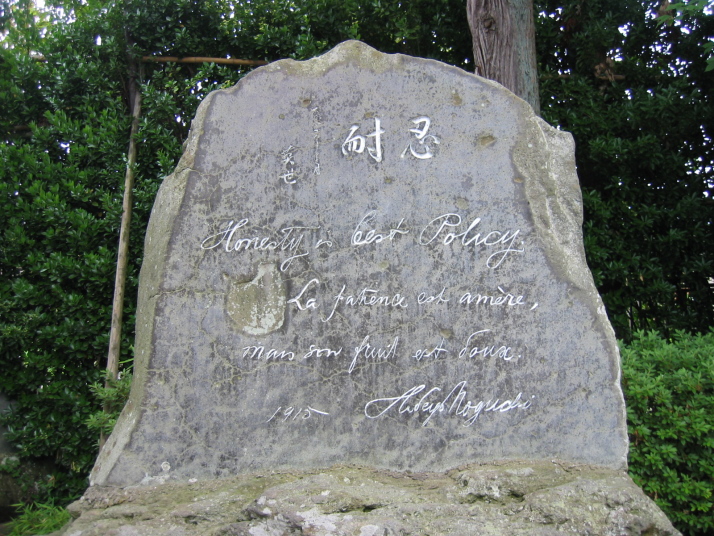 忍耐
英世
Honesty is best Policy.
La patience est amère,
mais son fruit est doux.
1915 Hideyo Noguchi